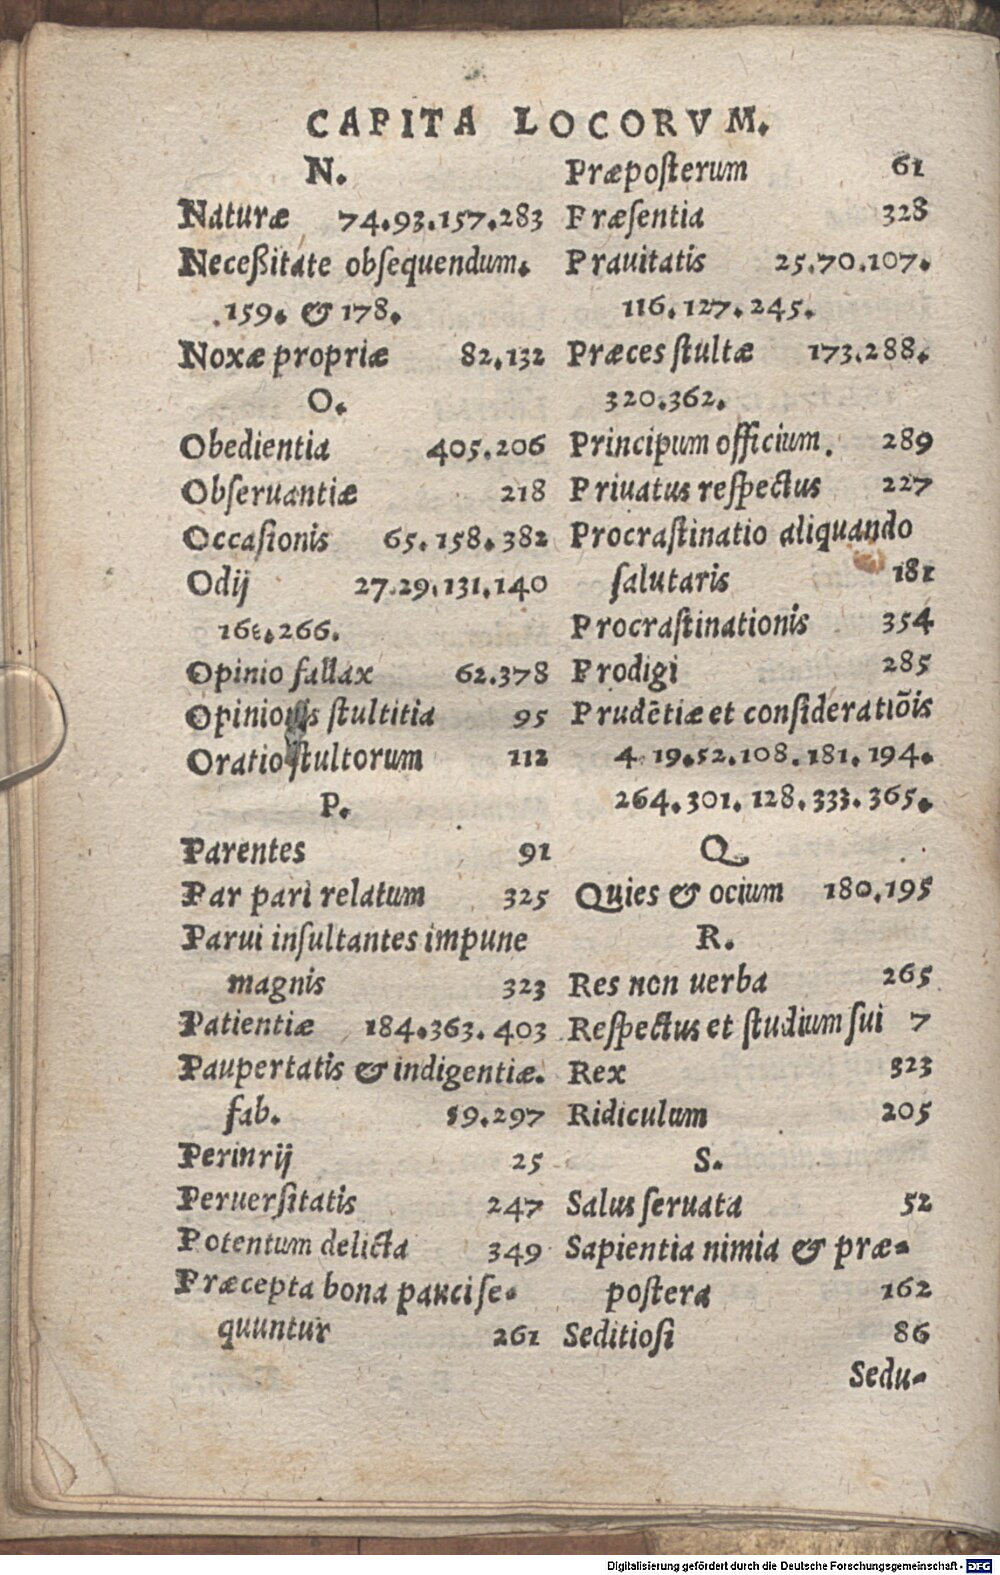 CAPITA LOCORVM.
N.
Naturæ 74.93.157.283
Neceßitate obſequendum.
159. & 178.
Noxæ propriæ 82.132
O.
Obedientia 405.206
Obſeruantiæ 218
Occaſionis 65.158.382
Odij 27.29.131.140
266.
Opinio fallax 62.378
Opinionis ſtultitia 95
Oratio ſtultorum 112
P.
Parentes 91
Par pari relatum 325
Parui inſultantes impune
magnis 323
Patientiæ 184.363.403
Paupertatis & indigentiæ.
fab. 59.297
Perinrij 25
Peruerſitatis 247
Potentum delicta 349
Præcepta bona pauci ſe-
quuntur 261
Præpoſterum 61
Præſentia 328
Prauitatis 25.70.107.
116.127.245.
Præces ſtultæ 173.288.
320.362.
Principum officium. 289
Priuatus reſpectus 227
Procraſtinatio aliquando
ſalutaris 181
Procraſtinationis 354
Prodigi 285
Prudētiæ et conſideratiõis
4.19.52.108.181.194.
264.301.128.333.365.
Q
Quies & ocium 180.195
R.
Res non uerba 265
Reſpectus et ſtudium ſui 7
Rex 323
Ridiculum 205
S.
Salus ſeruata 52
Sapientia nimia & præ-
poſtera 162
Seditioſi 86
Sedu-
Digitalisierung gefördert durch die Deutsche Forschungsgemeinschaft - DFG